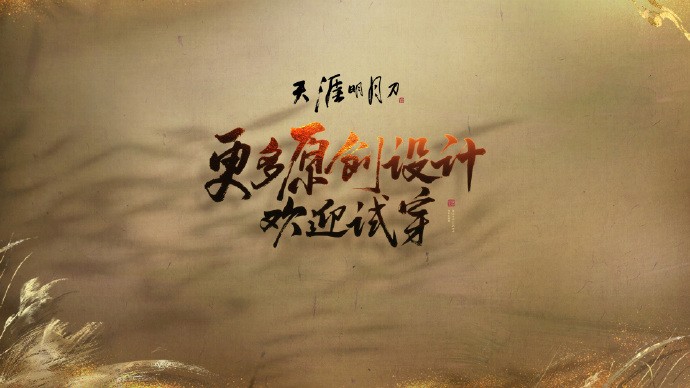 天涯明月刀
更多原创设计
欢迎试穿